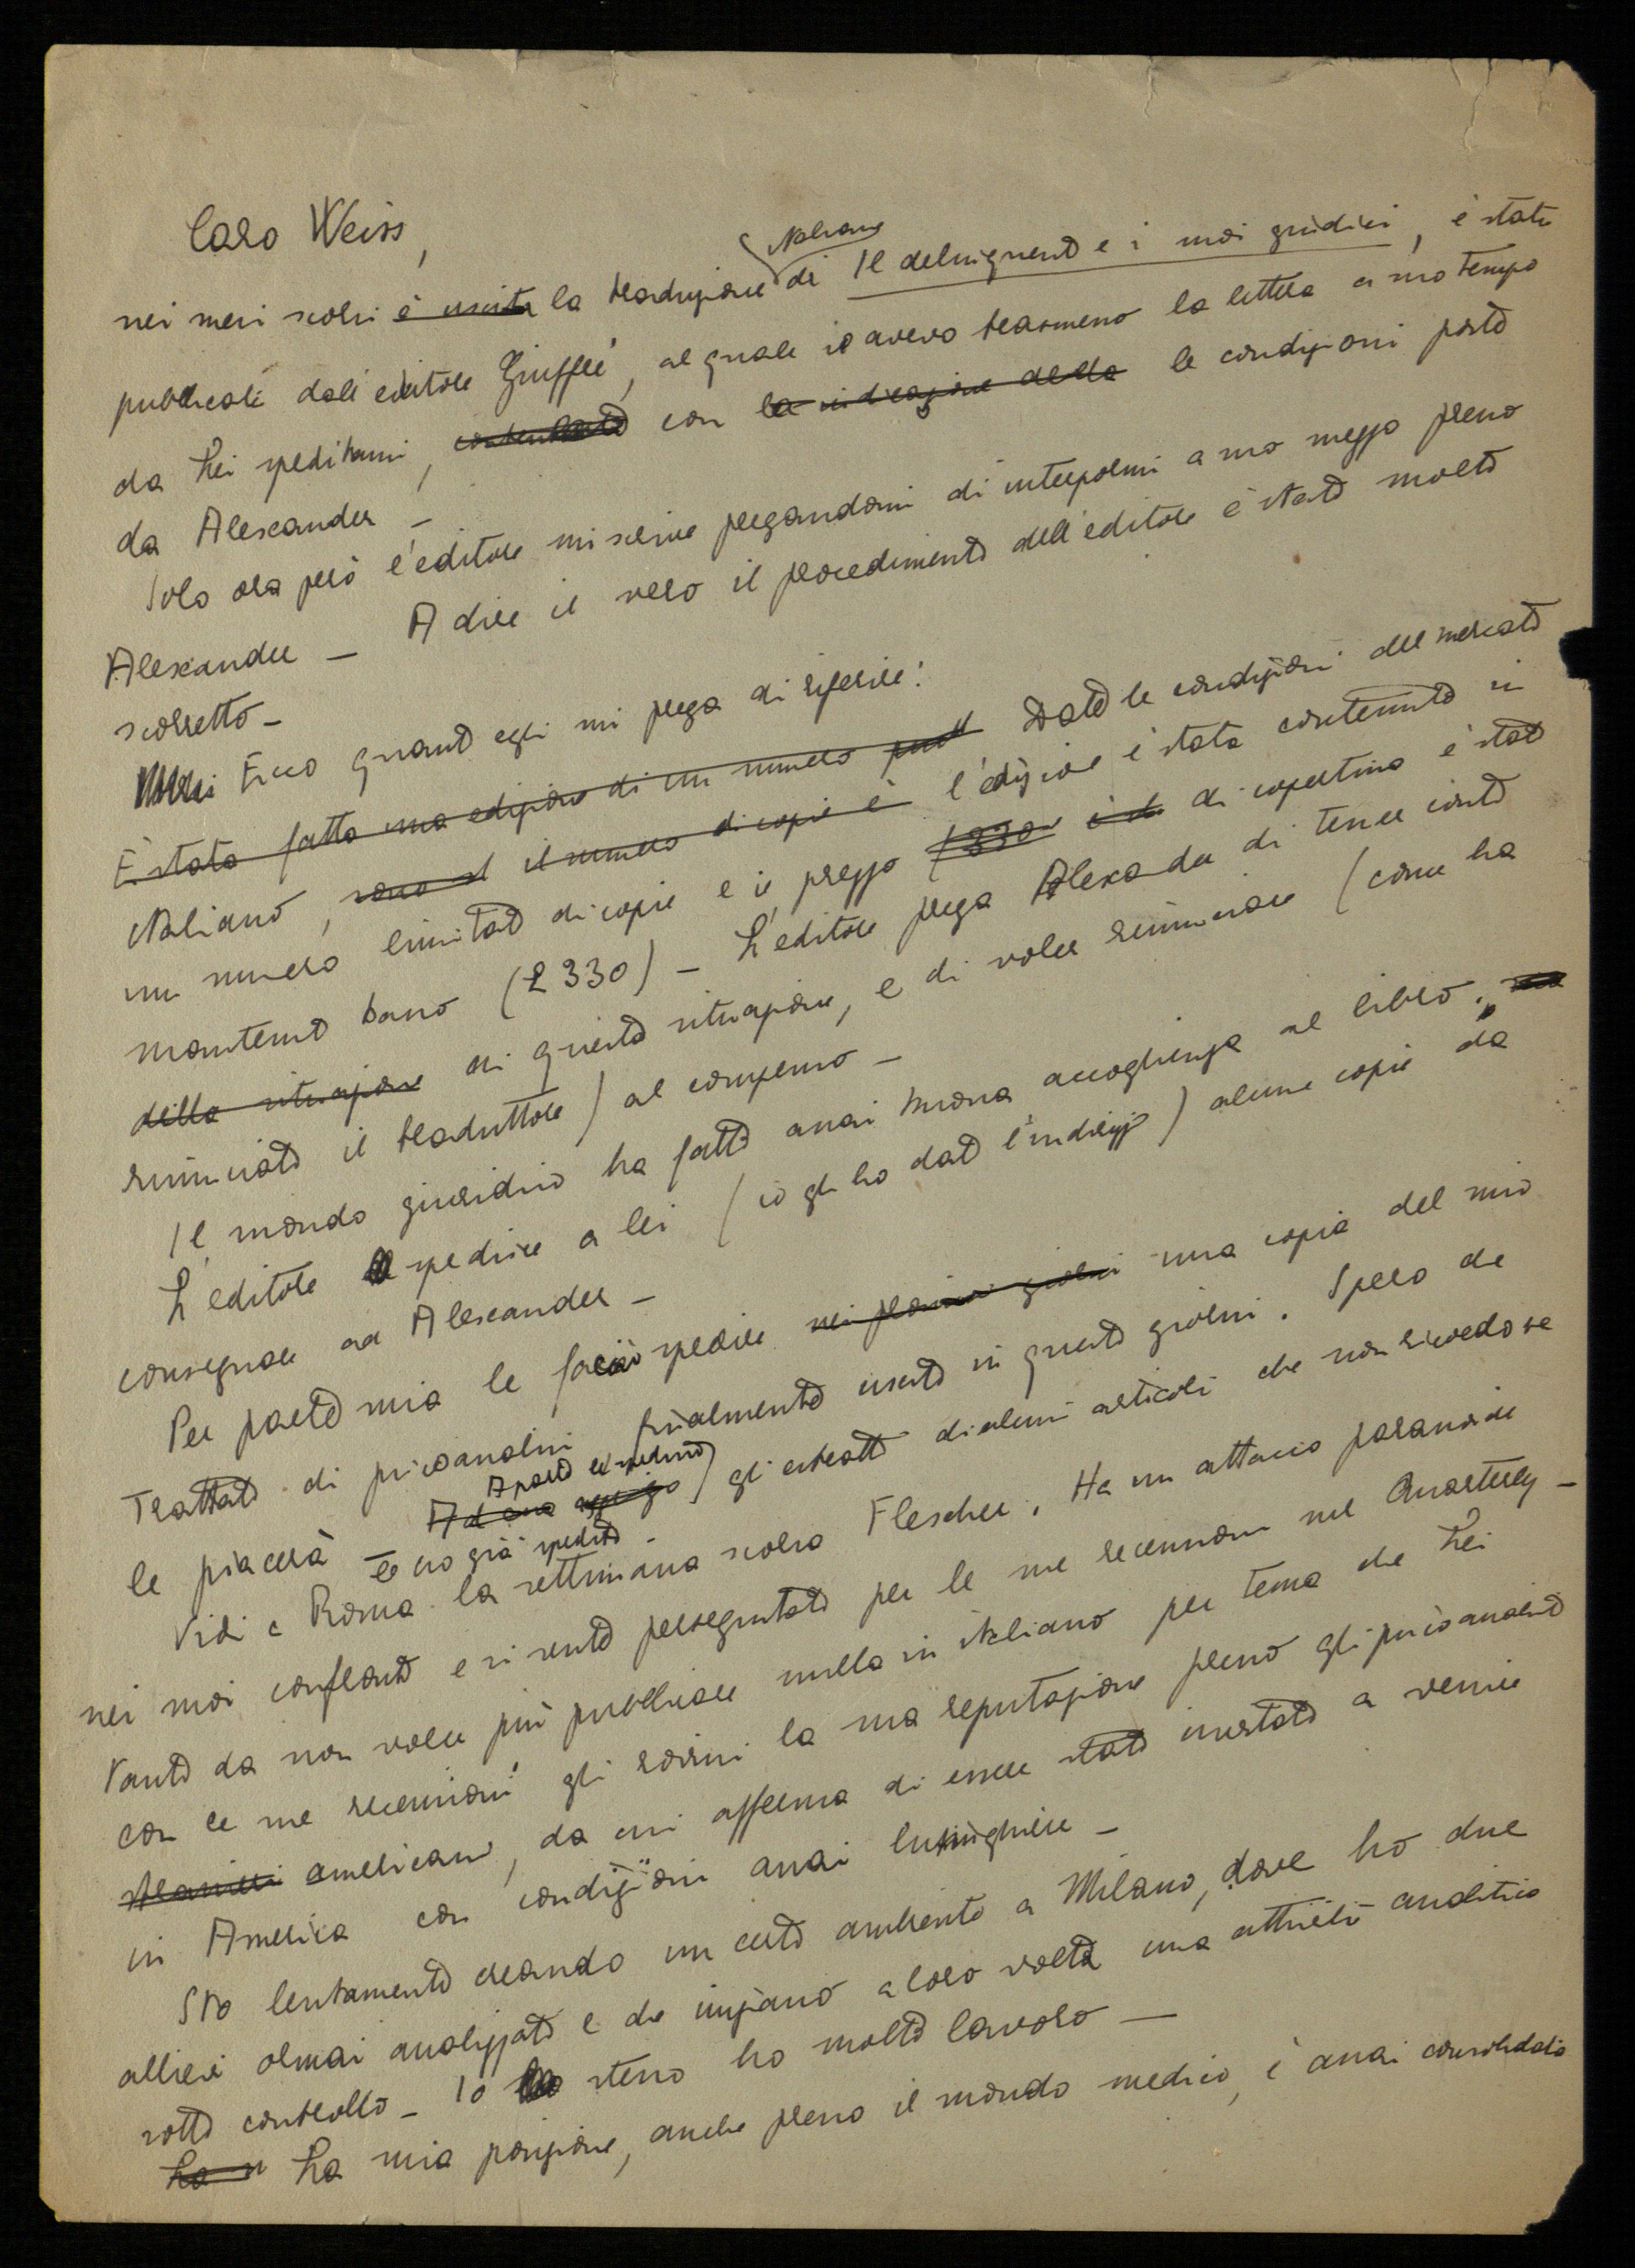 Caro Weiss,
italiana
nei mesi scorsi è uscita la traduzione di Il delinquente e i suoi giudici, è stata
pubblicata dall'editore Giuffré, al quale io avevo trasmesso la lettera a suo tempo
da Lei speditami, con la indicazione della le condizioni poste
da Alexander –
Solo ora però l'editore mi scrive pregandomi di interpormi a suo mezzo presso
Alexander – A dire il vero il procedimento dell'editore è stato molto
scorretto –
Ecco quanto egli mi prega di riferire:
È stata fatta una edizione di un numero Date le condizioni del mercato
italiano, il numero di copie è l'edizione è stata contenuta in
un numero limitato di copie e il prezzo (330 è st di copertina è stato
mantenuto basso (£ 330) – L'editore prega Alexander di tener conto
della situazione di questa situazione, e di voler rinunciare (come ha
rinunciato il traduttore) al compenso –
Il mondo giuridico ha fatto assai buona accoglienza al libro.
L'editore spedisce a lei (io gli ho dato l'indirizzo) alcune copie da
consegnare ad Alexander –
Per parte mia le faccio spedire nei prossimi giorni una copia del mio
Trattato di psicoanalisi finalmente uscito in questi giorni. Spero che
A parte le spedirò
le piacerà – gli estratti di alcuni articoli che non ricordo se
le ho già spedito –
Vidi a Roma la settimana scorsa Flescher. Ha un attacco paranoide
nei suoi confronti e si sente perseguitato per le sue recensioni nel Quarterly –
Tanto da non voler più pubblicare nulla in italiano per tema che Lei
con le sue recensioni gli rovini la sua reputazione presso gli psicoanalisti
stranieri americani, da cui afferma di essere stato invitato a venire
in America con condizioni assai lusinghiere –
Sto lentamente creando un certo ambiente a Milano, dove ho due
allievi ormai analizzati e che iniziano a loro volta una attività analitica
sotto controllo – Io stesso ho molto lavoro –
La s La mia posizione, anche presso il mondo medico, è assai consolidata